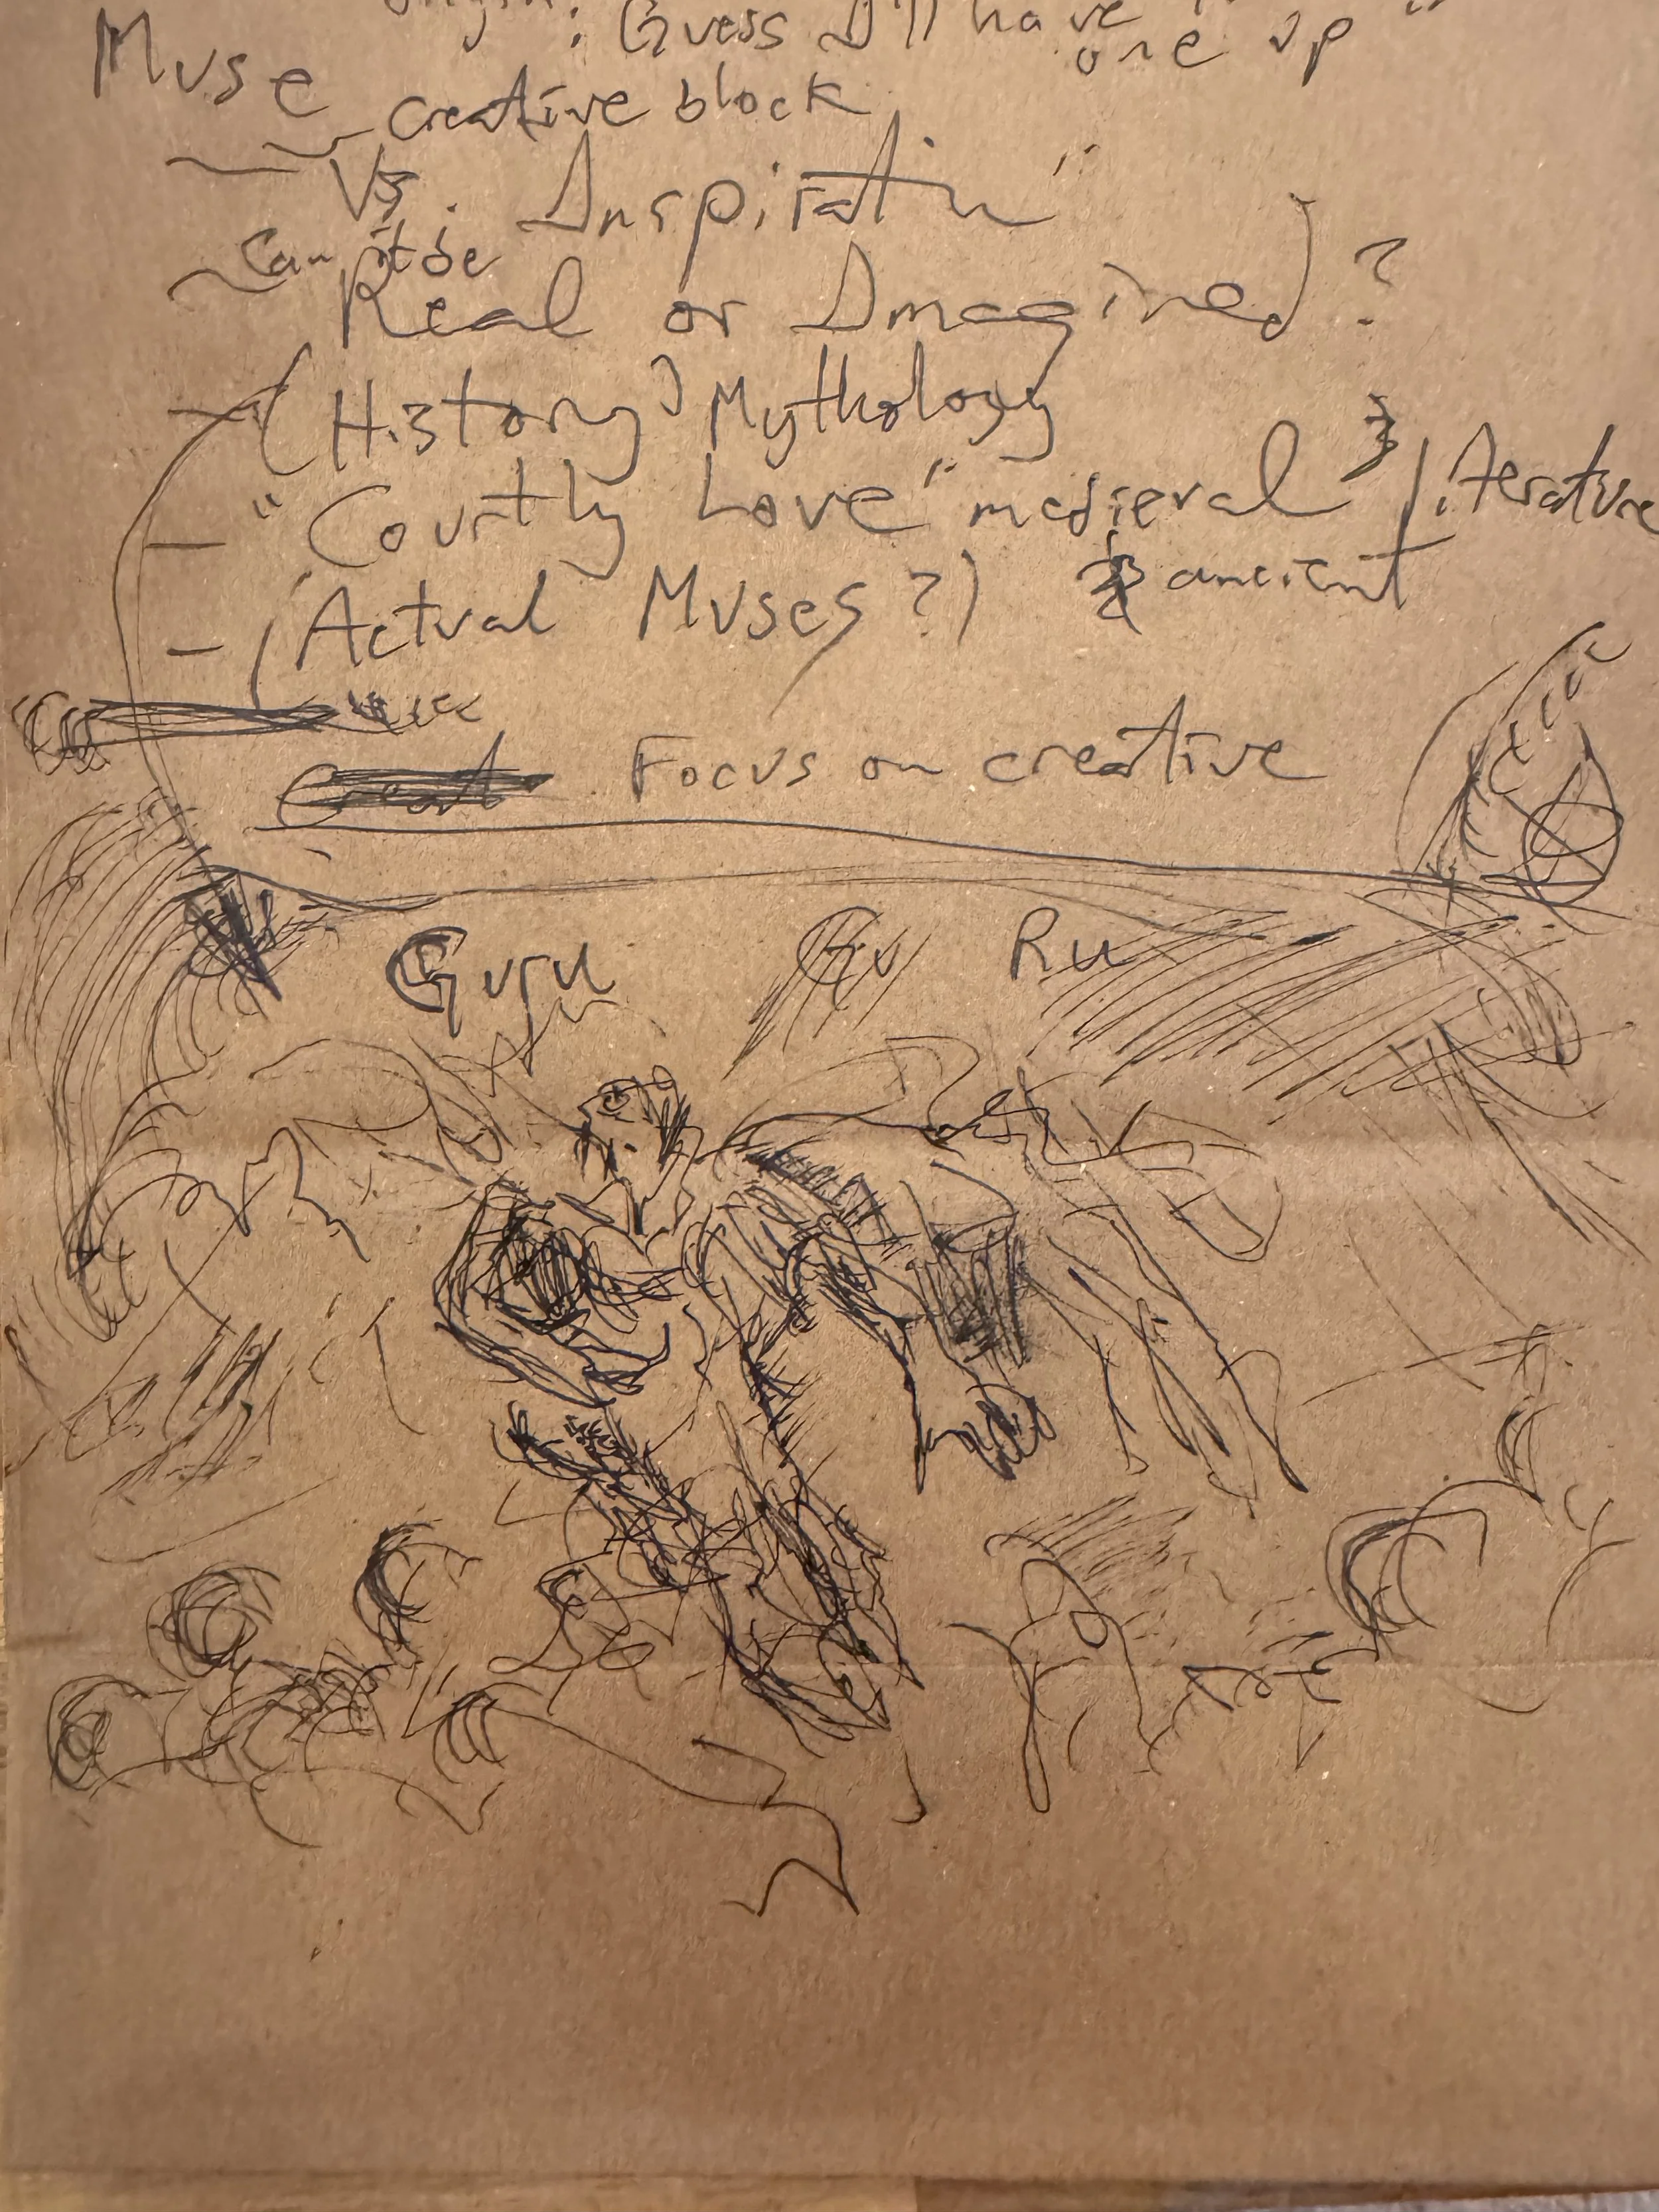 : Guess I'll have
one up"
Muse
creative block
Vs. Inspiratin"
Can it be
Real or Imagined) ?
- (History) Mythology
- "Courtly Love" medieval & literature
& ancient
- (Actual Muses?)
Focus on creative
Guru Gu Ru